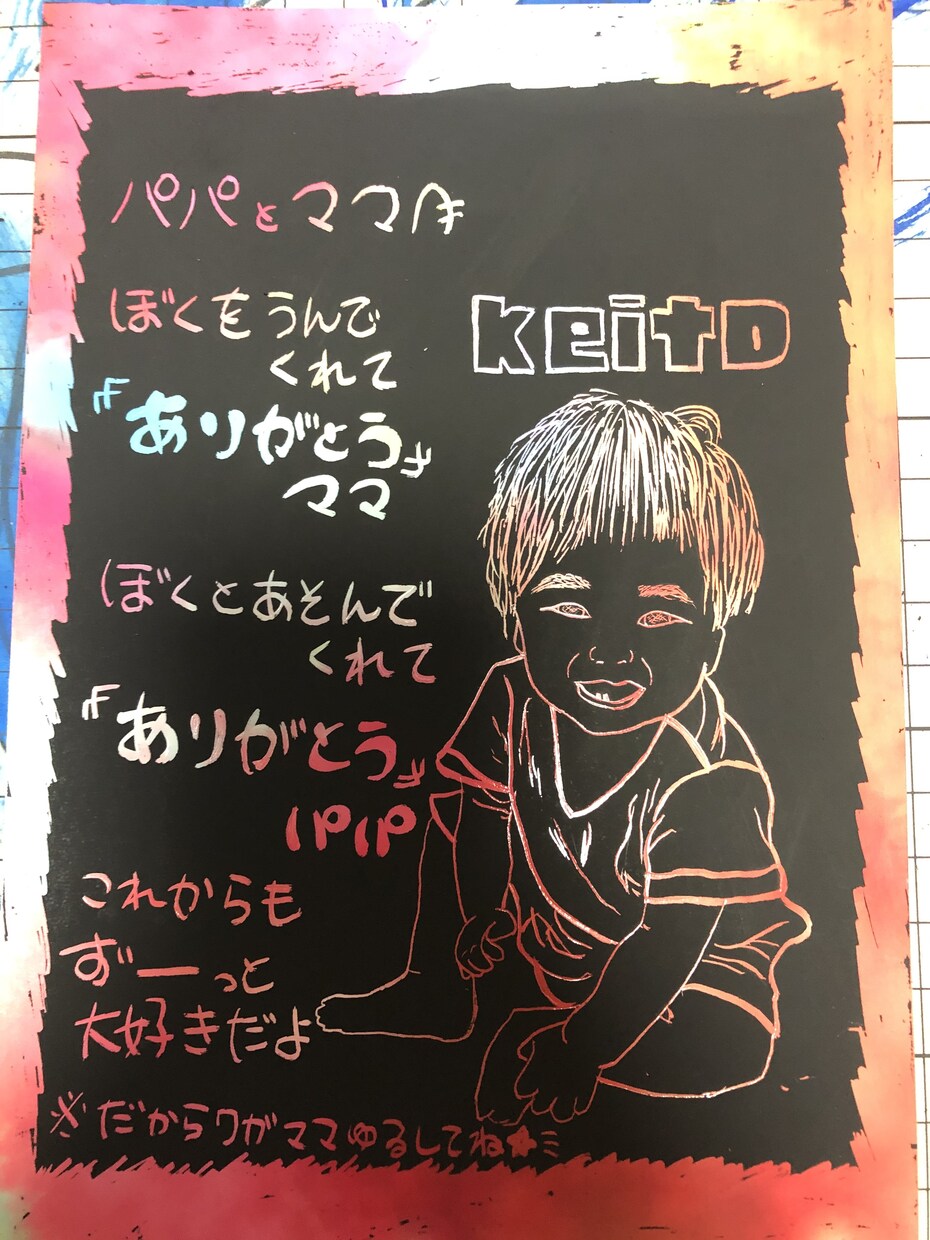 パパとママへ
ぼくをうんで
くれて
『ありがとう』
ママ
KeitO
ぼくとあそんで
くれて
『ありがとう』
パパ
これからも
ずーっと
大好きだよ
※だからワガママゆるしてね★ミ